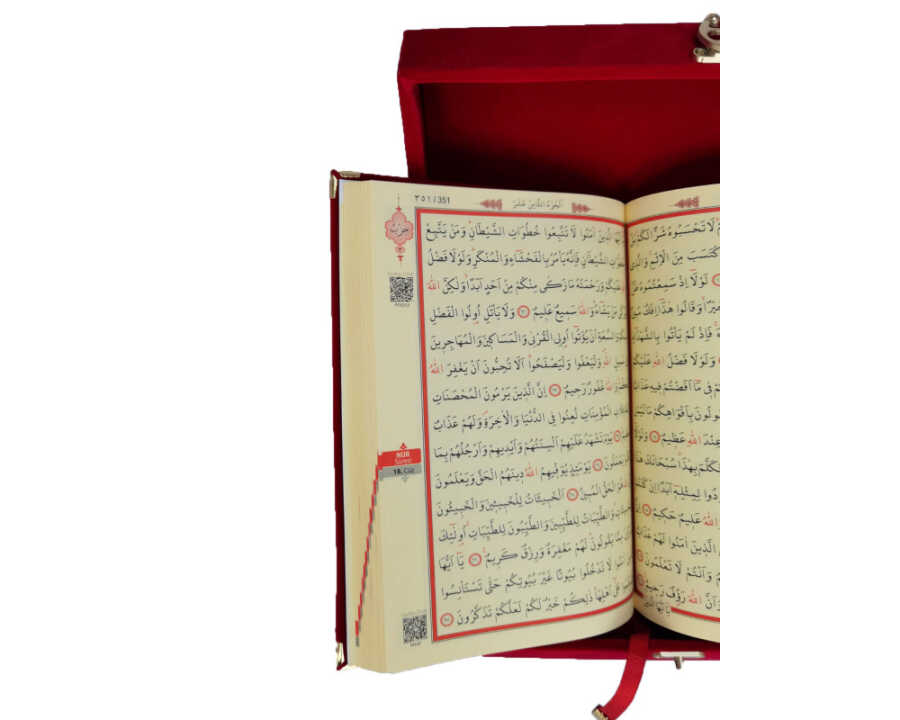 ٣٥١/351
اَلْجُزْءُ الثَّامِنَ عَشَرَ
حِزْبٌ
الَّذ۪ينَ اٰمَنُوا لَا تَتَّبِعُوا خُطُوَاتِ الشَّيْطَانِۜ وَمَنْ يَتَّبِعْ
الشَّيْطَانِ فَاِنَّهُ يَأْمُرُ بِالْفَحْشَٓاءِ وَالْمُنْكَرِۜ وَلَوْلَا فَضْلُ
عَلَيْكُمْ وَرَحْمَتُهُ مَا زَكٰى مِنْكُمْ مِنْ اَحَدٍ اَبَدًاۙ وَلٰكِنَّ اللّٰهَ
مَنْ يَشَٓاءُۜ وَاللّٰهُ سَم۪يعٌ عَل۪يمٌ ﴿٢١﴾ وَلَا يَأْتَلِ اُو۬لُوا الْفَضْلِ
وَالسَّعَةِ اَنْ يُؤْتُٓوا اُو۬لِي الْقُرْبٰى وَالْمَسَاك۪ينَ وَالْمُهَاجِر۪ينَ
سَب۪يلِ اللّٰهِۖ وَلْيَعْفُوا وَلْيَصْفَحُواۜ اَلَا تُحِبُّونَ اَنْ يَغْفِرَ اللّٰهُ
وَاللّٰهُ غَفُورٌ رَح۪يمٌ ﴿٢٢﴾ اِنَّ الَّذ۪ينَ يَرْمُونَ الْمُحْصَنَاتِ
الْمُؤْمِنَاتِ لُعِنُوا فِي الدُّنْيَا وَالْاٰخِرَةِۖ وَلَهُمْ عَذَابٌ
﴿٢٣﴾ يَوْمَ تَشْهَدُ عَلَيْهِمْ اَلْسِنَتُهُمْ وَاَيْد۪يهِمْ وَاَرْجُلُهُمْ بِمَا
﴿٢٤﴾ يَوْمَئِذٍ يُوَفّ۪يهِمُ اللّٰهُ د۪ينَهُمُ الْحَقَّ وَيَعْلَمُونَ
هُوَ الْحَقُّ الْمُب۪ينُ ﴿٢٥﴾ اَلْخَب۪يثَاتُ لِلْخَب۪يث۪ينَ وَالْخَب۪يثُونَ
وَالطَّيِّبَاتُ لِلطَّيِّب۪ينَ وَالطَّيِّبُونَ لِلطَّيِّبَاتِۚ اُو۬لٰٓئِكَ
مِمَّا يَقُولُونَۜ لَهُمْ مَغْفِرَةٌ وَرِزْقٌ كَر۪يمٌ ﴿٢٦﴾ يَٓا اَيُّهَا
اٰمَنُوا لَا تَدْخُلُوا بُيُوتًا غَيْرَ بُيُوتِكُمْ حَتّٰى تَسْتَأْنِسُوا
عَلٰٓى اَهْلِهَاۜ ذٰلِكُمْ خَيْرٌ لَكُمْ لَعَلَّكُمْ تَذَكَّرُونَ ﴿٢٧﴾
NUR
Suresi
18. Cüz
لَا تَحْسَبُوهُ شَرًّا لَكُمْۜ
اكْتَسَبَ مِنَ الْاِثْمِۚ وَالَّذ۪ي
لَوْلَٓا اِذْ سَمِعْتُمُوهُ
وَقَالُوا هٰذَٓا اِفْكٌ
فَاِذْ لَمْ يَأْتُوا بِالشُّهَدَٓاءِ
وَلَوْلَا فَضْلُ اللّٰهِ عَلَيْكُمْ
ف۪ي مَٓا اَفَضْتُمْ ف۪يهِ عَذَابٌ
بِاَفْوَاهِكُمْ مَا لَيْسَ
عِنْدَ اللّٰهِ عَظ۪يمٌ ﴿١٥﴾ وَلَوْلَٓا
بِهٰذَاۗ سُبْحَانَكَ هٰذَا
لِمِثْلِه۪ٓ اَبَدًا اِنْ كُنْتُمْ
وَاللّٰهُ عَل۪يمٌ حَك۪يمٌ ﴿١٨﴾
الَّذ۪ينَ اٰمَنُوا لَهُمْ عَذَابٌ
وَاَنْتُمْ لَا تَعْلَمُونَ ﴿١٩﴾
وَاَنَّ اللّٰهَ رَؤُ۫فٌ رَح۪يمٌ